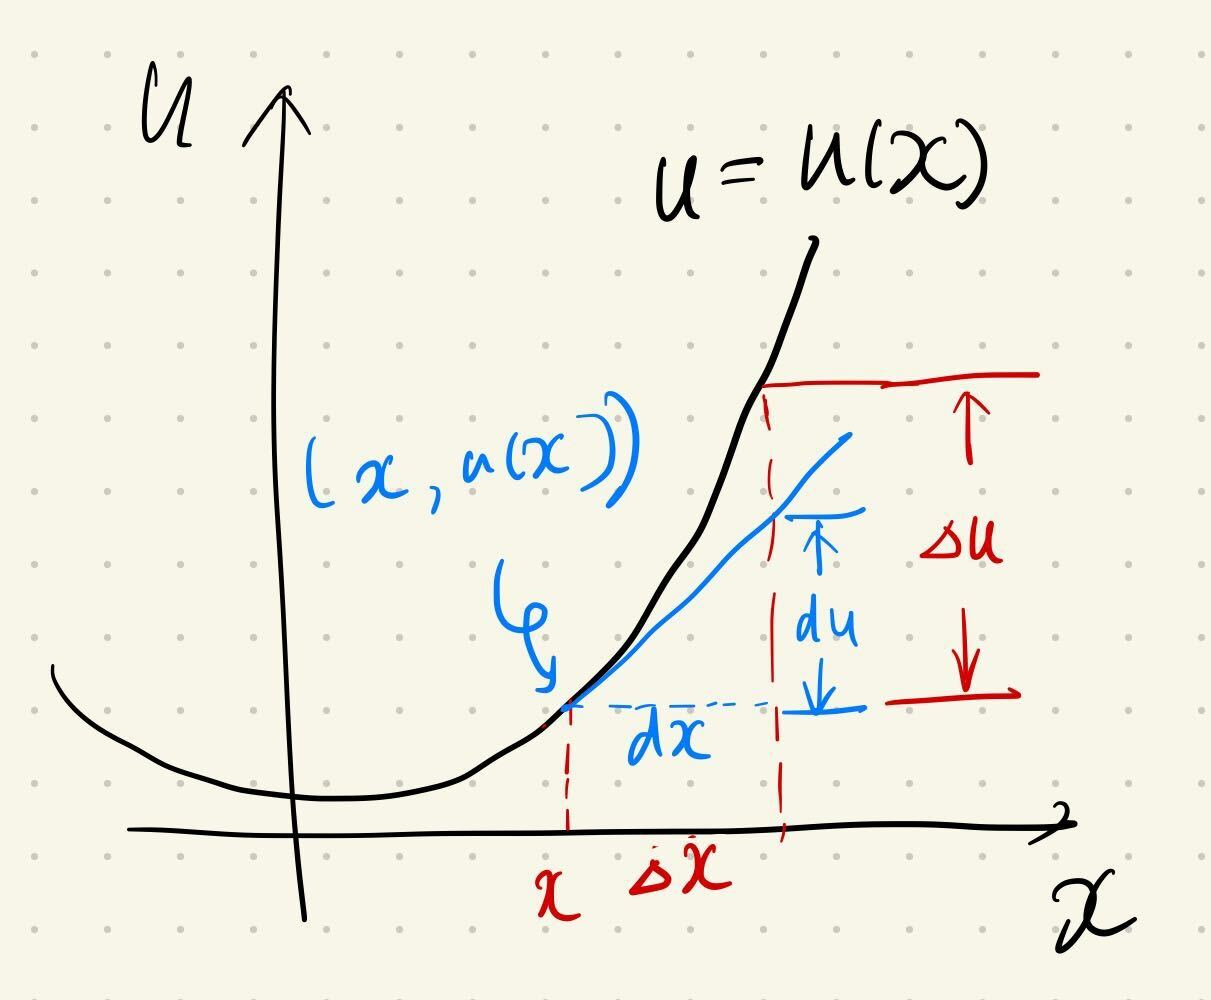 u
u = u(x)
(x, u(x))
Δu
du
dx
x
Δx
x